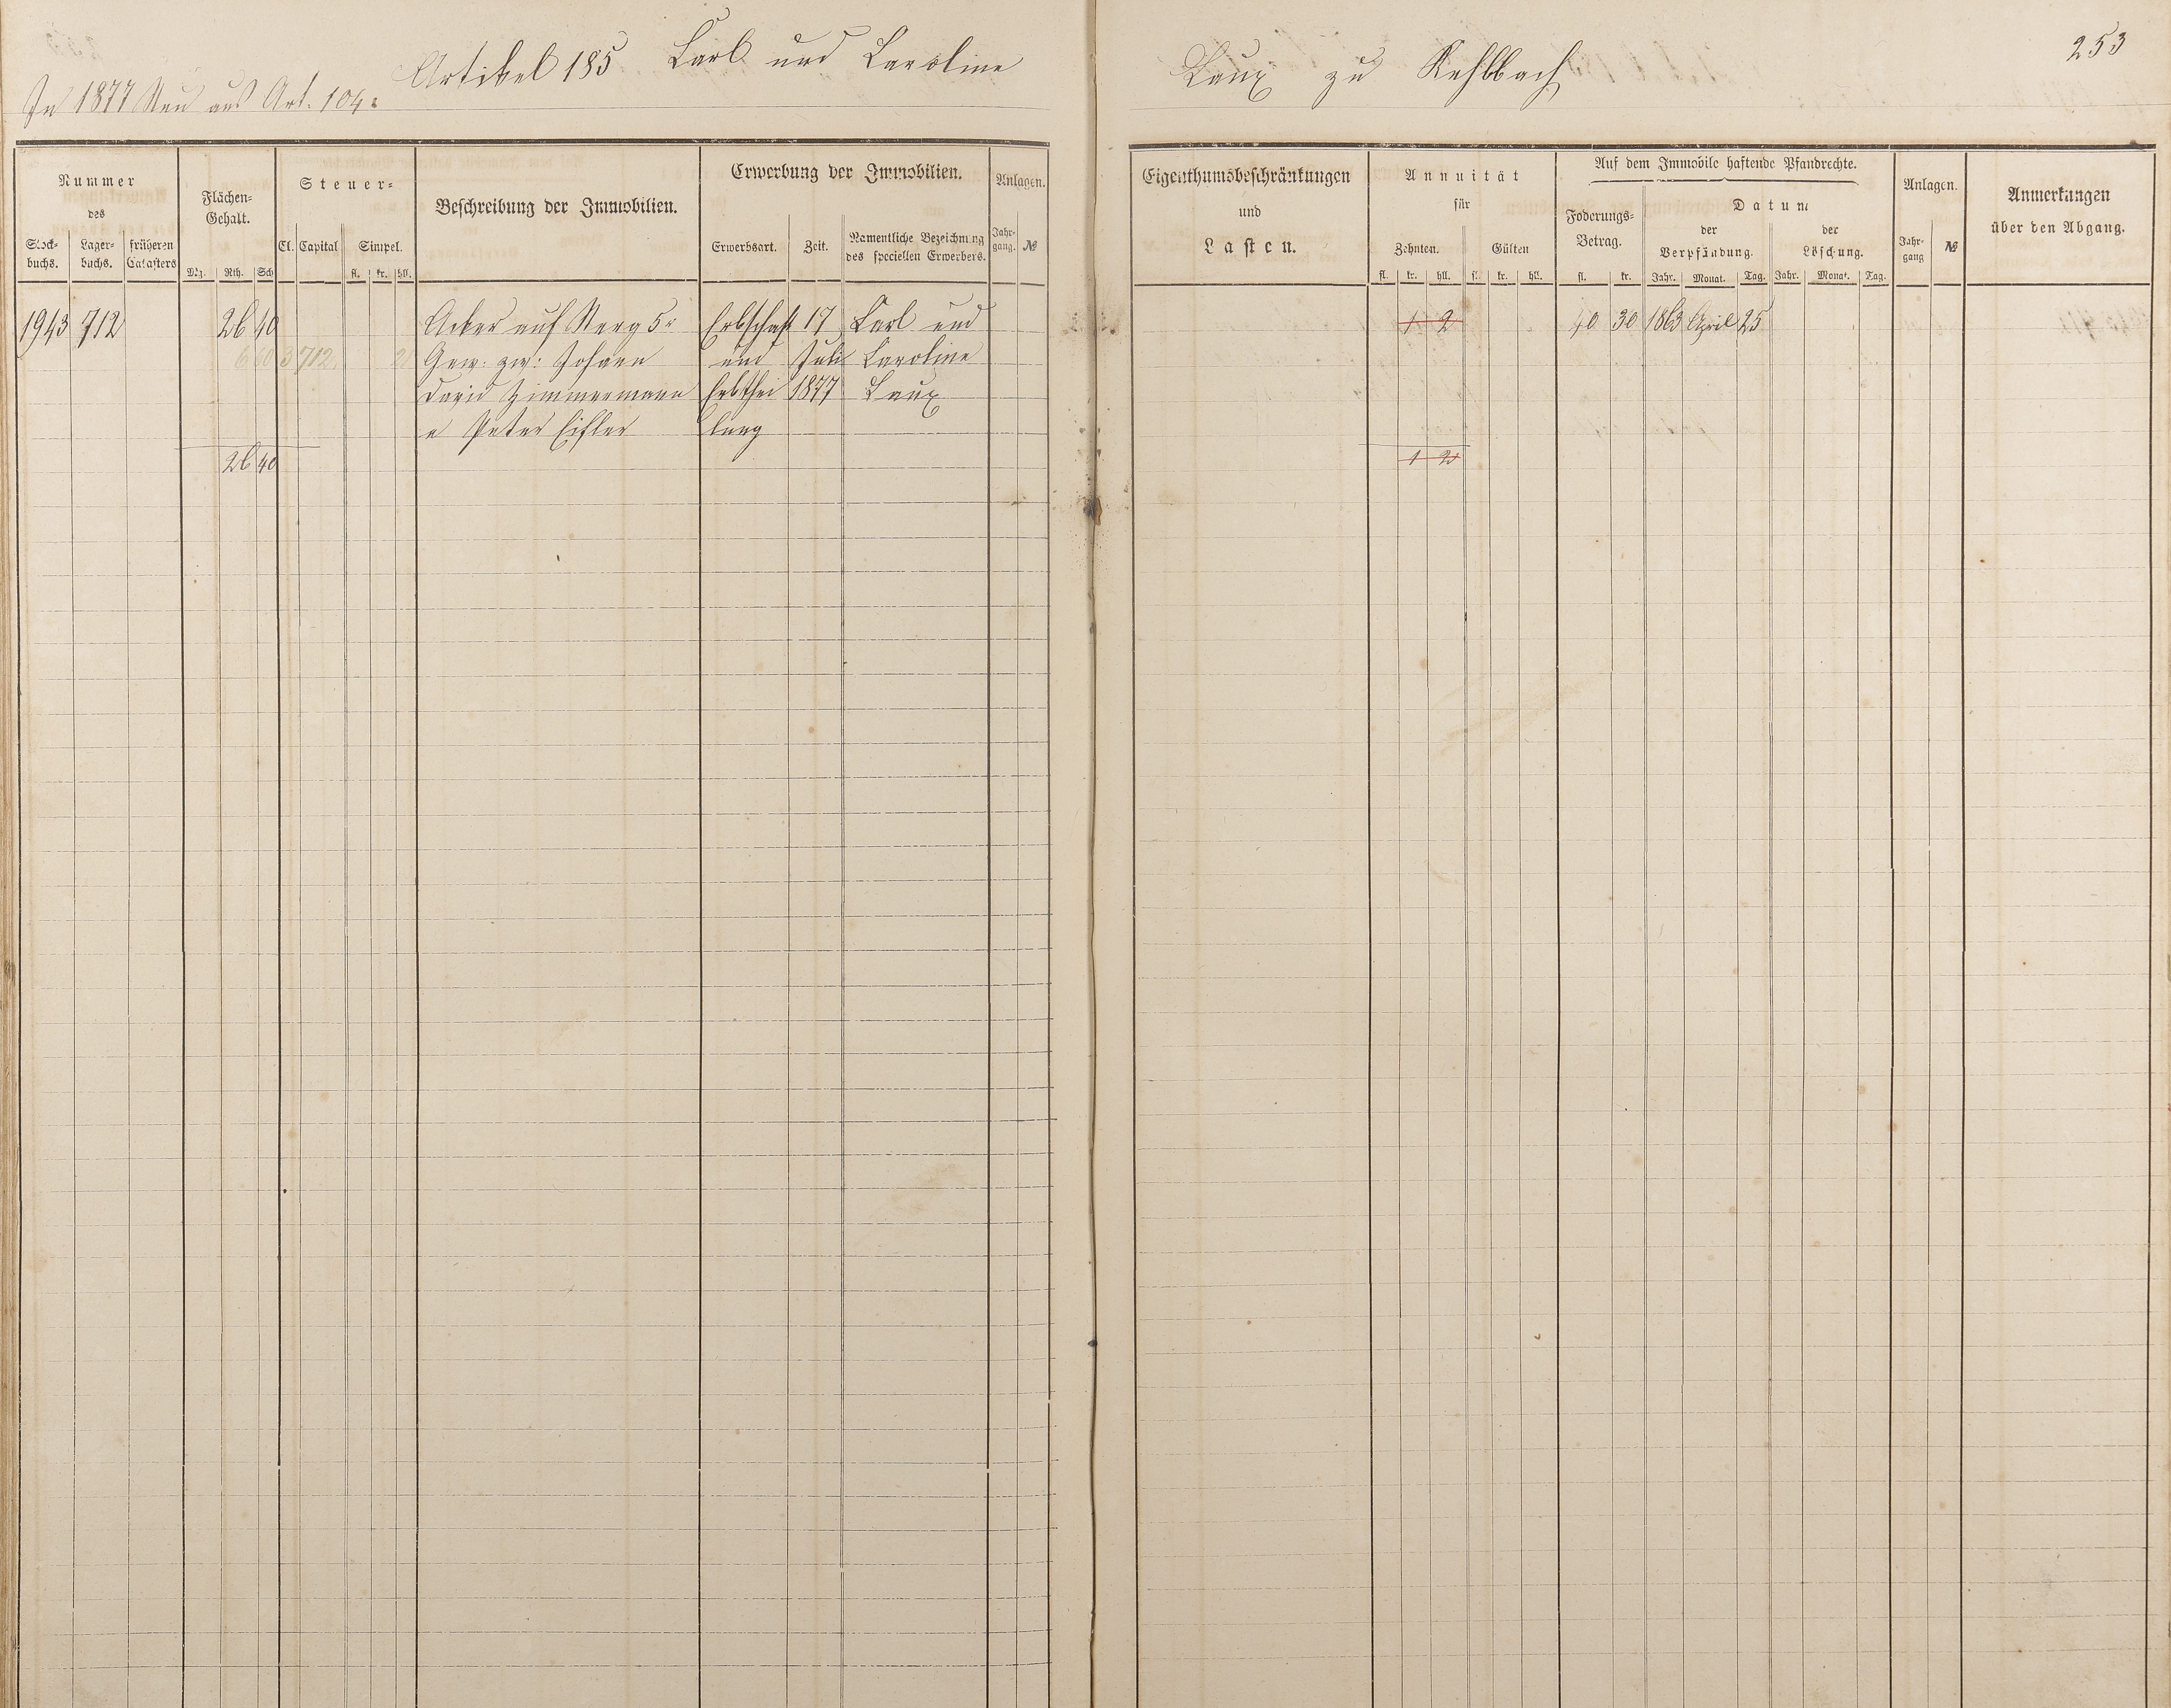 Artikel 185 Carl und Caroline
In 1877 Neu aus Art. 104.
Nummer
des
Stock-
buchs.
Lager-
buchs.
früheren
Catasters
Flächen-
Gehalt.
Mg. Rth. Sch
Steuer-
Cl. Capital Simpel.
fl. kr. hll.
Beschreibung der Immobilien.
Erwerbung der Immobilien.
Erwerbsart. Zeit.
Namentliche Bezeichnung
des speciellen Erwerbers.
Anlagen.
Jahr-
gang. №
1943 712 26 40 Acker auf 5r Erbschaft 17 Carl und
6 60 3 712 2 Gew: zw: Johann und Juli Caroline
David Zimmermann Erbthei 1877 Laux
u Peter Eifler lung
26 40
Laux zu Kehlbach
253
Eigenthumsbeschränkungen
und
Lasten.
Annuität
für
Zehnten. Gülten
fl. kr. hll. fl. kr. hll.
Auf dem Immobile haftende Pfandrechte.
Foderungs-
Betrag.
fl. kr.
Datum
der
Verpfändung.
Jahr. Monat. Tag.
der
Löschung.
Jahr. Monat. Tag.
Anlagen.
Jahr-
gang
№
Anmerkungen
über den Abgang.
1 2 40 30 1863 April 25
1 2